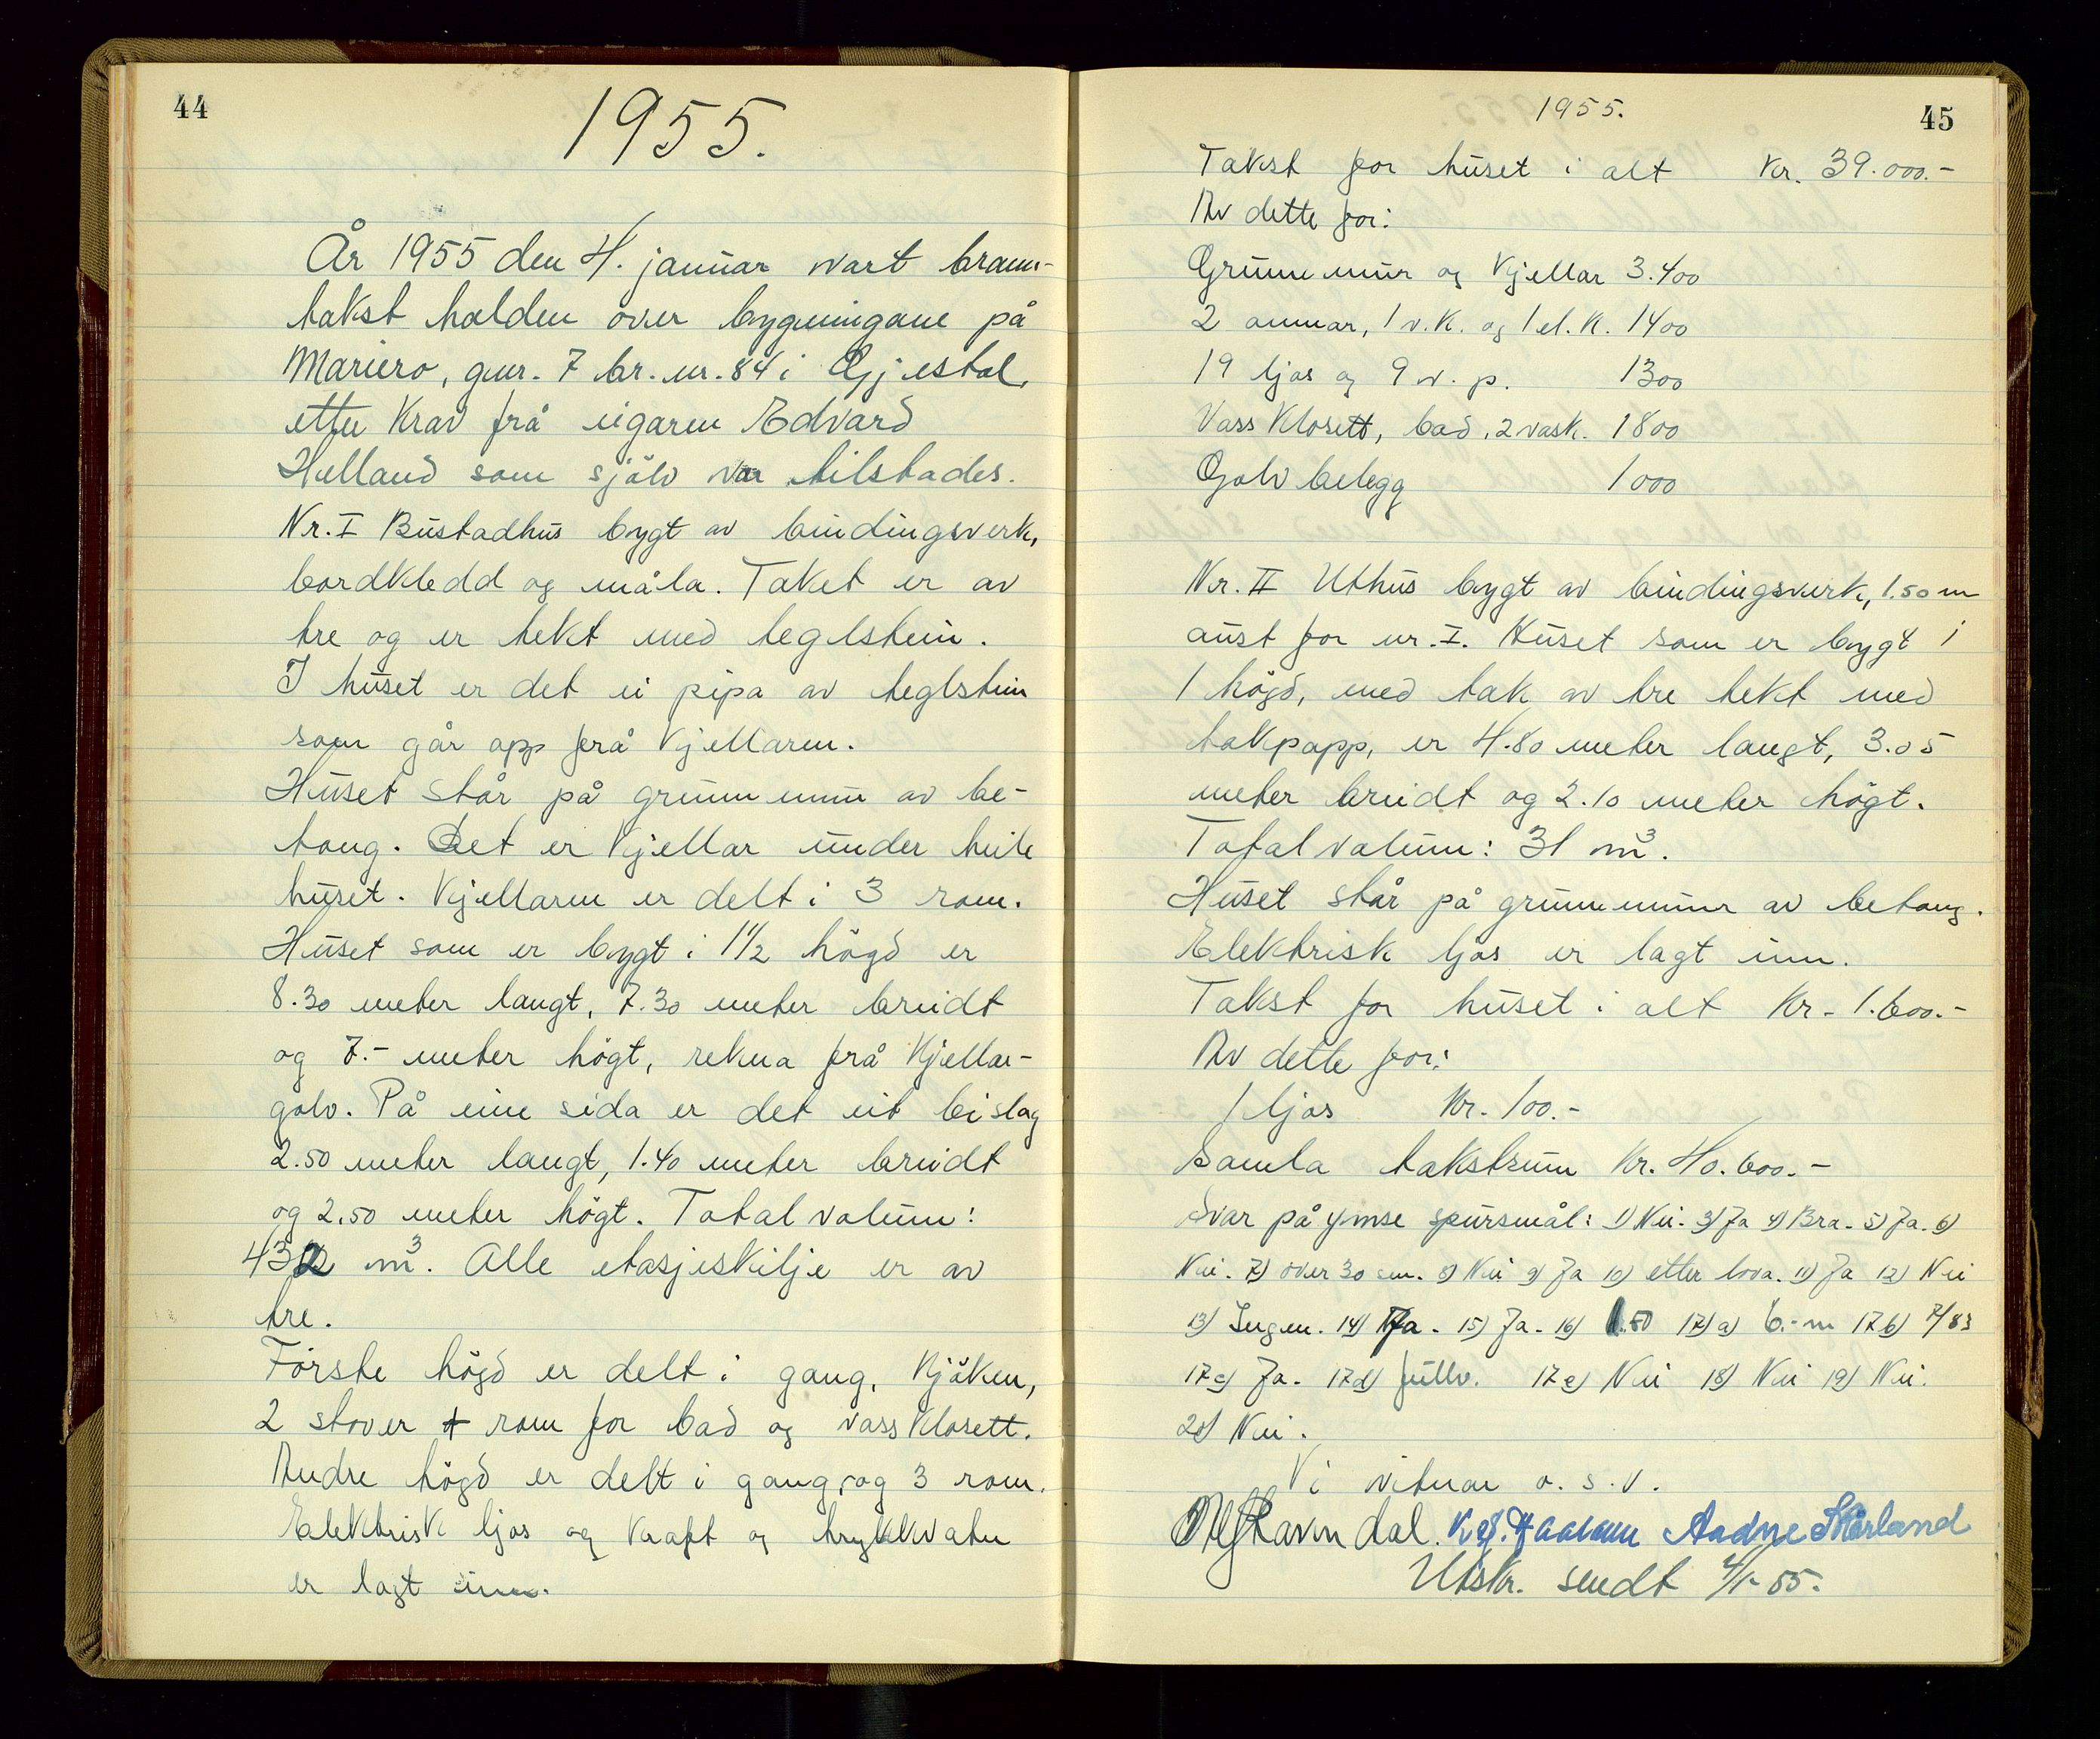 44
1955.
År 1955 den 4. januar vart brann-
takst halden over bygningane på
Mariero, gnr. 7 br. nr. 84 i Gjestal,
etter krav frå eigaren Edvard
Helland som sjölv var tilstades.
Nr. I Bustadhus bygt av bindingsverk,
bordkledd og måla. Taket er av
tre og er tekt med teglstein.
I huset er det ei pipa av teglstein
som går opp frå kjellaren.
Huset står på grunnmur av be-
tong. Det er kjellar under heile
huset. Kjellaren er delt i 3 rom.
Huset som er bygt i 1 1/2 högd er
8.30 meter langt, 7.30 meter breidt
og 7.- meter högt, rekna frå kjellar-
golv. På eine sida er det eit bislag
2.50 meter langt, 1.40 meter breidt
og 2.50 meter högt. Total volum:
432 m³. Alle etasjeskilje er av
tre.
Förste högd er delt i gang, kjöken,
2 stover + rom for bad og vassklosett.
Andre högd er delt i gang, og 3 rom.
Elektrisk ljos og kraft og trykkvatn
er lagt inn.
1955.
45
Takst for huset i alt Kr. 39.000.-
Av dette for:
Grunnmur og kjellar 3.400
2 omnar, 1 v.k. og 1 el. k. 1400
19 ljos og 9 v. p. 1300
Vassklosett, bad, 2 vask. 1800
Golvbelegg 1000
Nr. II Uthus bygt av bindingsverk, 1.50 m
aust for nr. I. Huset som er bygt i
1 högd, med tak av tre tekt med
takpapp, er 4.80 meter langt, 3.05
meter breidt og 2.10 meter högt.
Total volum: 31 m³.
Huset står på grunnmur av betong.
Elektrisk ljos er lagt inn.
Takst for huset i alt Kr. 1.600.-
Av dette for:
1 ljos Kr. 100.-
Samla takstsum Kr. 40.600.-
Svar på ymse spursmål: 1) Nei. 3) Ja 4) Bra. 5) Ja. 6)
Nei. 7) over 30 cm. 8) Nei 9) Ja 10) etter lova. 11) Ja 12) Nei
13) Ingen. 14) Ja. 15) Ja. 16) 1.50 17) a) 6.- m 17 b) 7/83
17 c) Ja. 17 d) fullv. 17 e) Nei 18) Nei 19) Nei.
20) Nei.
Vi vitnar o. s. v.
Ravndal. Aadne Skårland
Utskr. sendt 4/1-55.